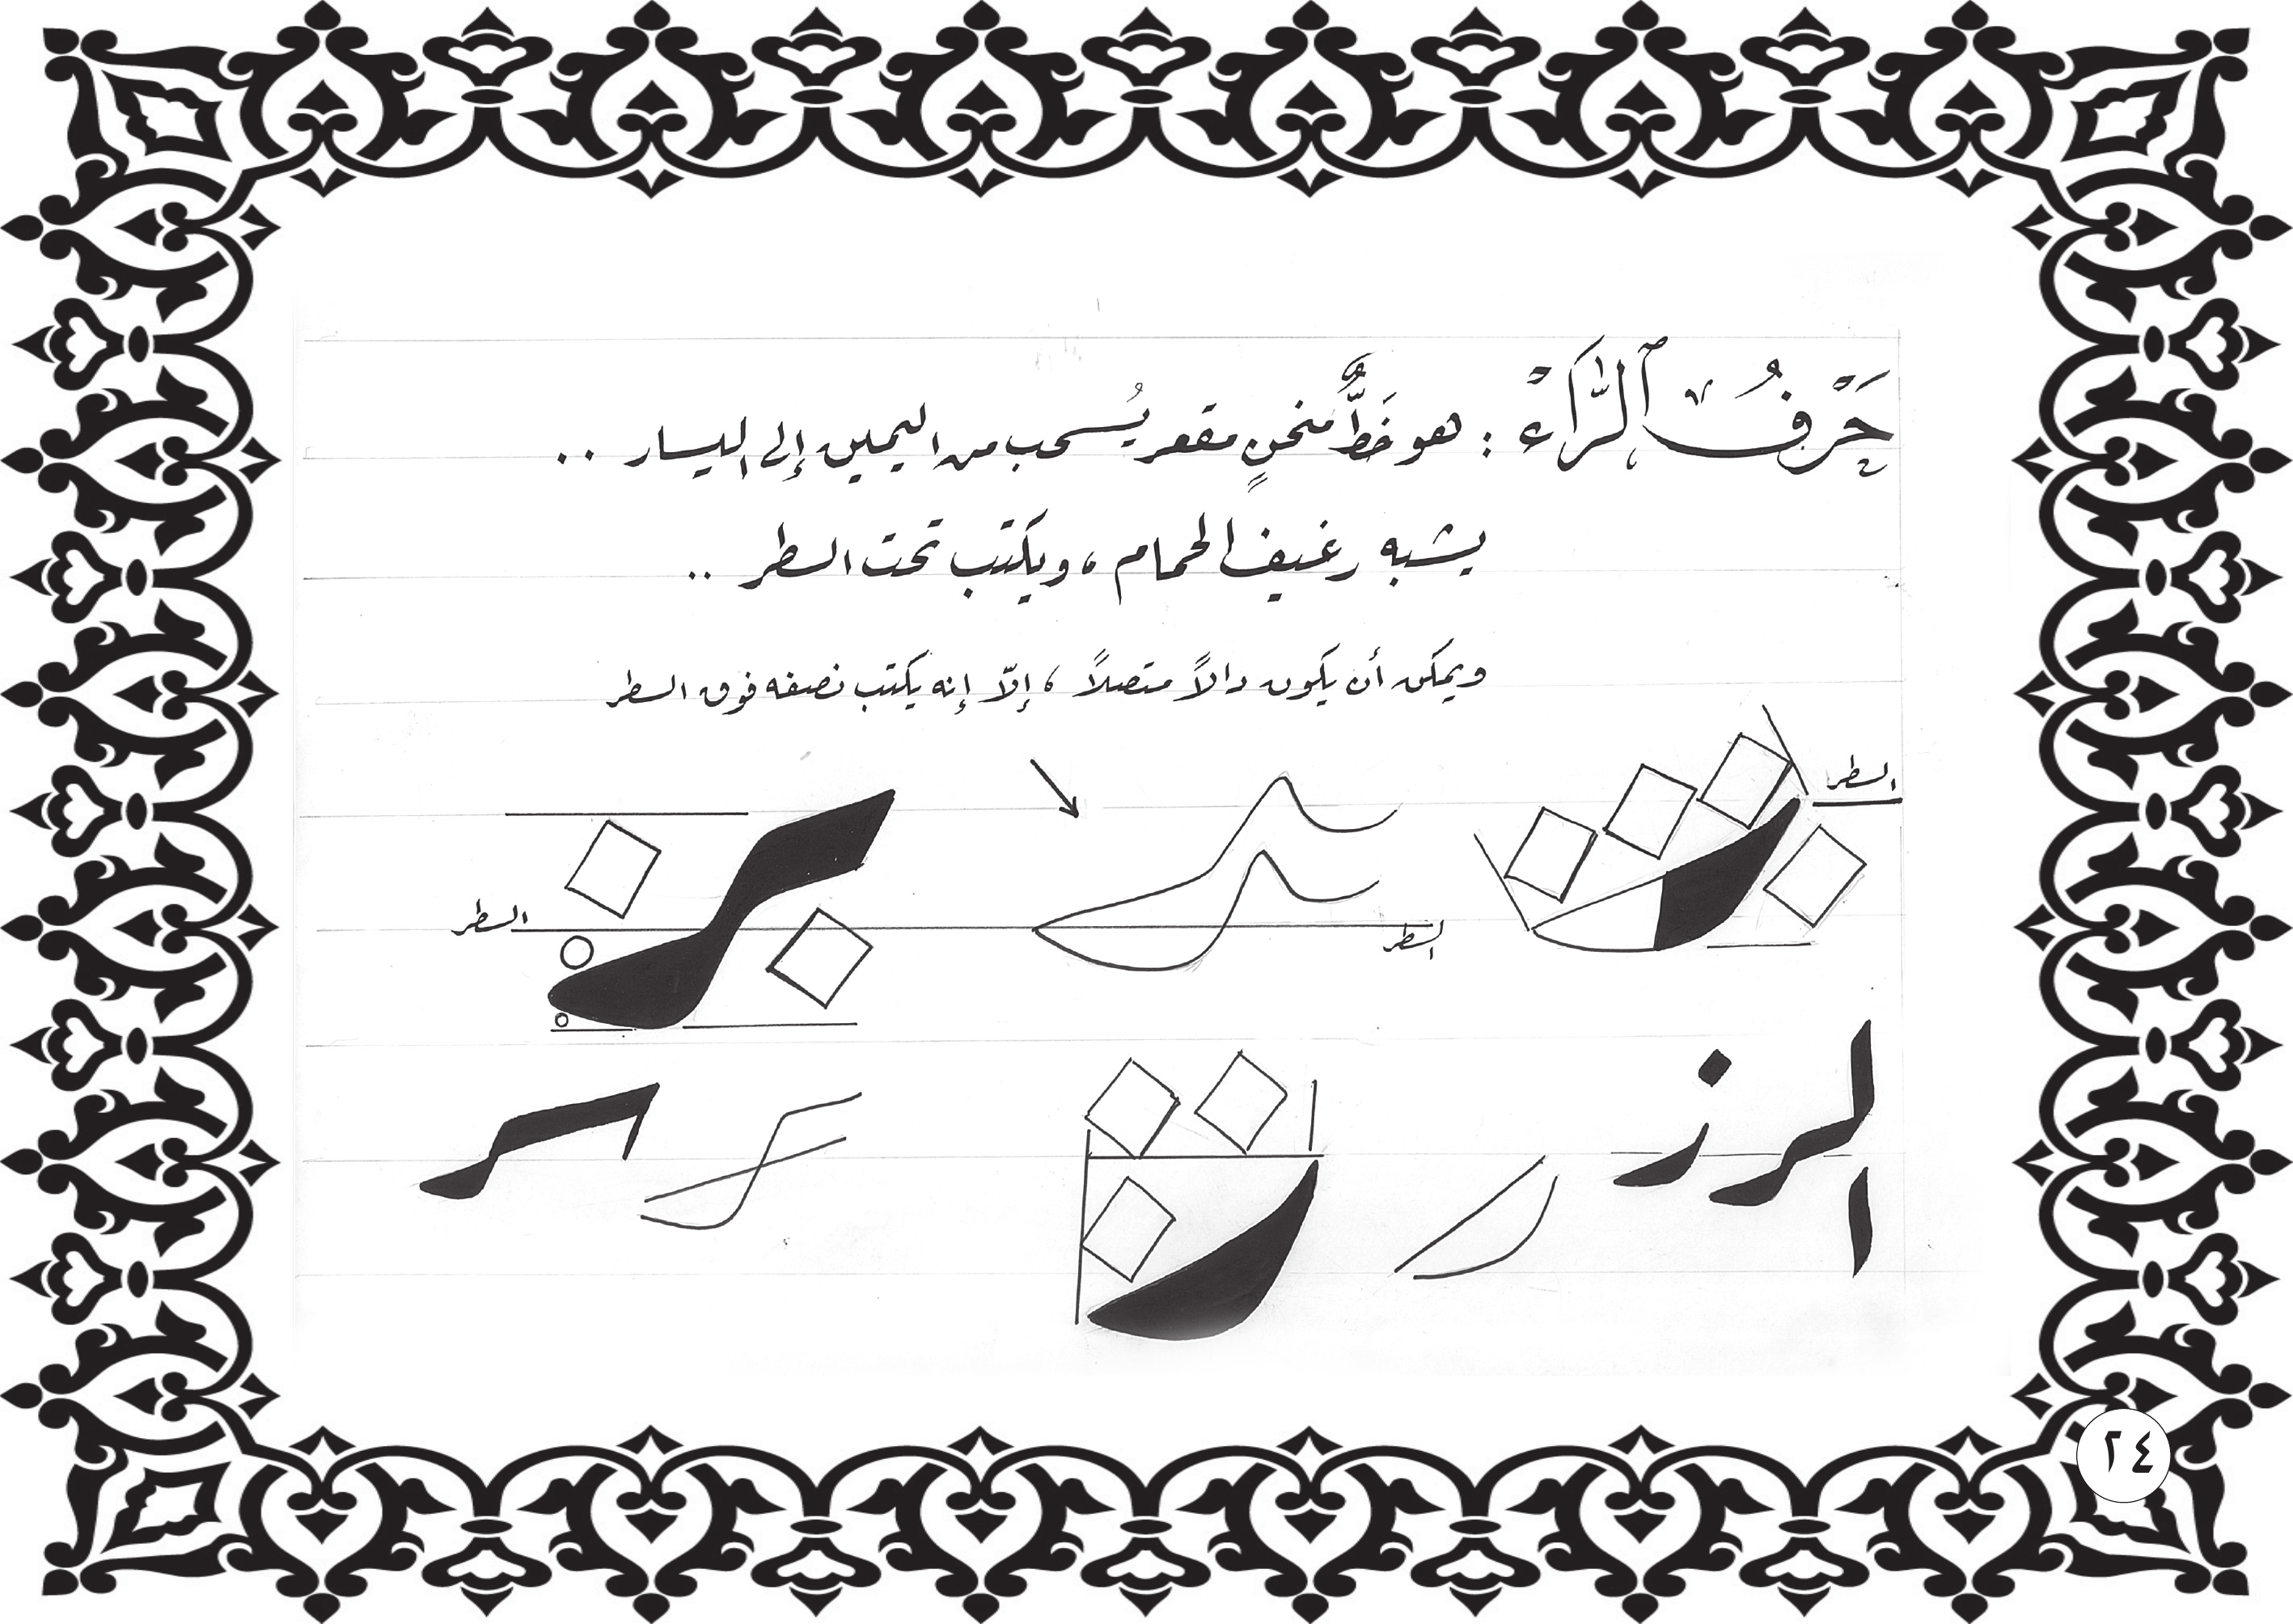 حَرْفُ ٱلرَّاءْ : هو خَطٌّ منحنٍ مقعر يُسحب من اليمين إلى اليسار ..
يشبه رغيف الحمام ، ويكتب تحت السطر ..
ويمكن أن يكون دالاً متصلاً ، إلاّ إنه يكتب نصفه فوق السطر
السطر
السطر
السطر
الرز
٢٤